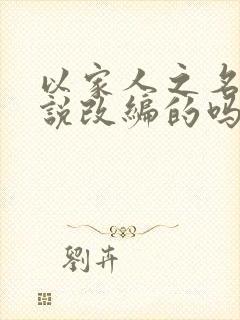 以家人之名
說改編的嗎
劉卉